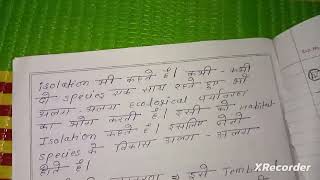 isolation भी कहते है। कभी - कभी
दो species एक साथ रहते हुए भी
अलग - अलग Ecological पर्यावरण
का भोग करती है। इसी को Habitat
Isolation कहते है। इसलिए दोनों
species के विकास अलग - अलग
होते है।
इसे
XRecorder